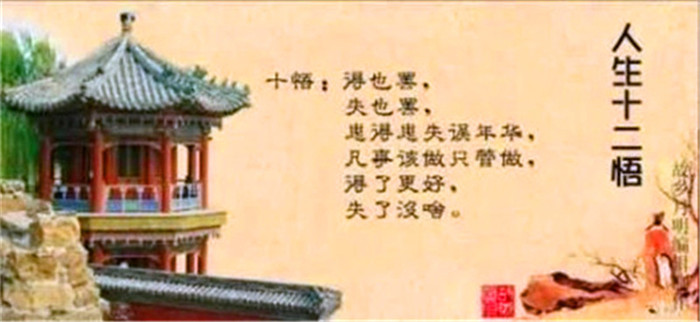 人生十二悟
十悟：得也罢，
失也罢，
患得患失误年华，
凡事该做只管做，
得了更好，
失了没啥。
故乡月明